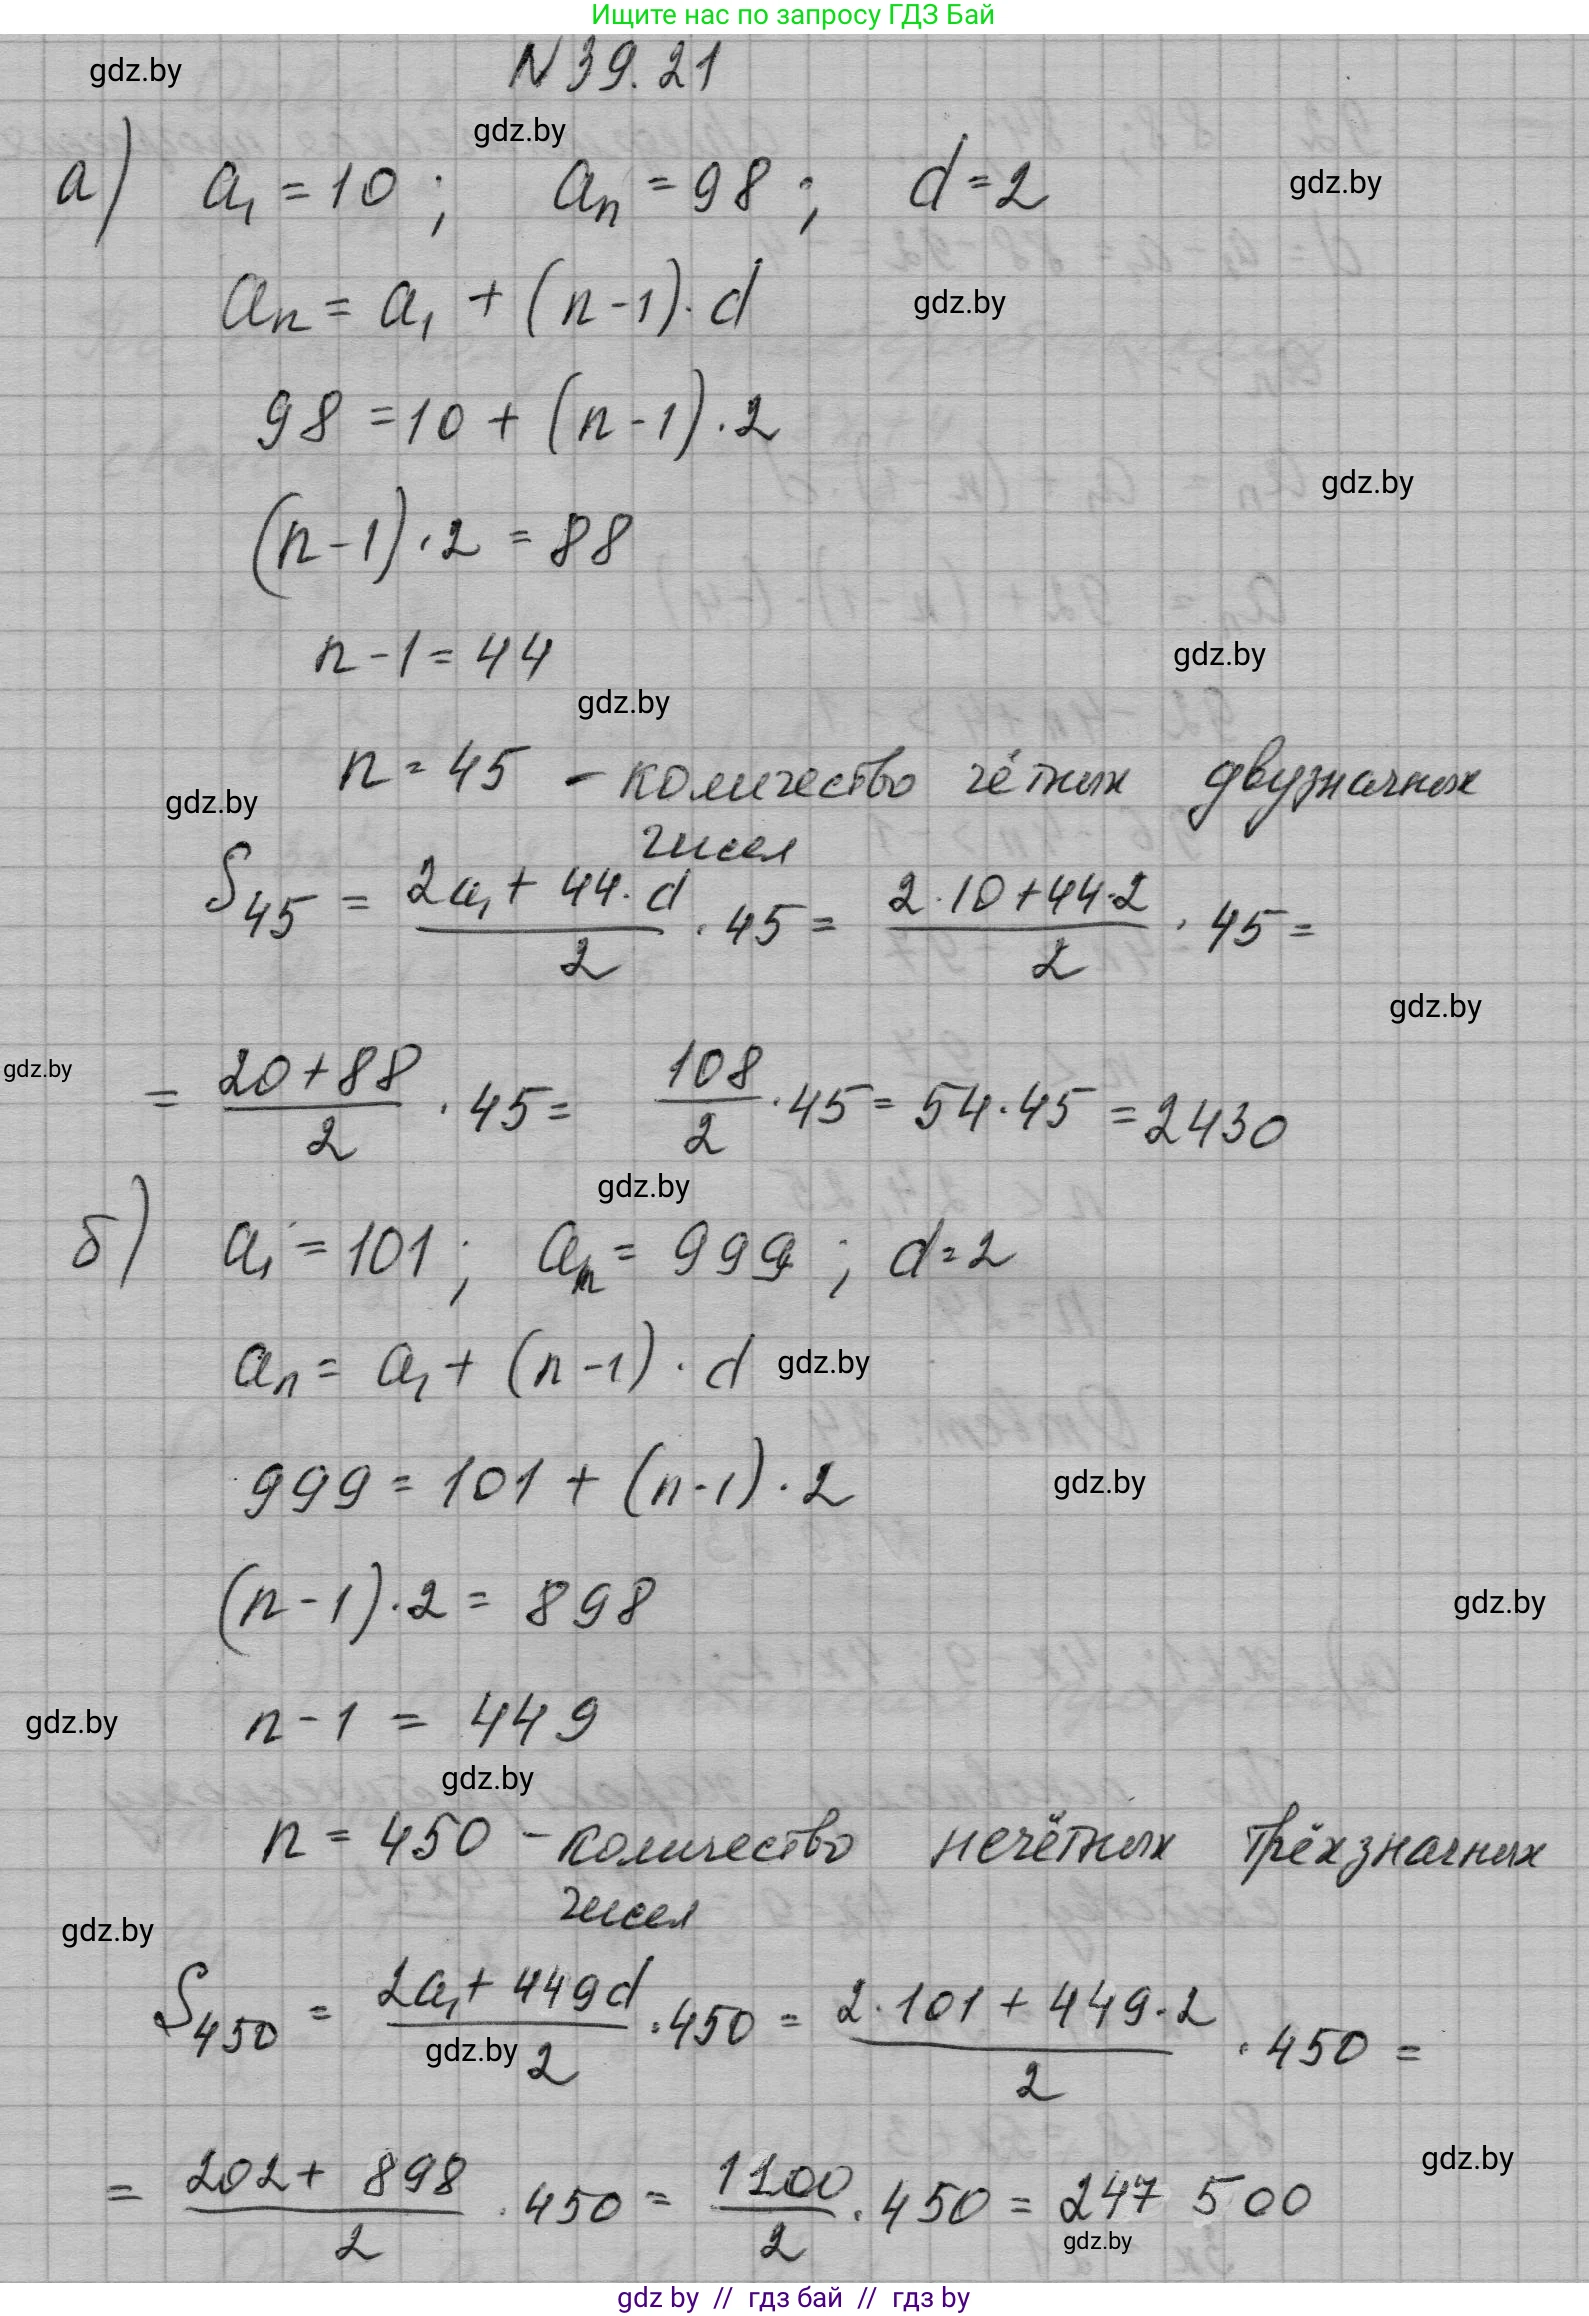 Ищите нас по запросу ГДЗ Бай
N 39.21
gdz.by
gdz.by
а) a₁ = 10 ; aₙ = 98 ; d = 2
gdz.by
aₙ = a₁ + (n-1)·d
gdz.by
98 = 10 + (n-1)·2
gdz.by
(n-1)·2 = 88
n-1 = 44
gdz.by
gdz.by
n = 45 - количество чётных двузначных
gdz.by
чисел
S₄₅ = (2a₁ + 44·d)/2 · 45 = (2·10+44·2)/2 · 45 =
gdz.by
gdz.by
= (20+88)/2 · 45 = 108/2 · 45 = 54·45 = 2430
gdz.by
б) a₁ = 101 ; aₙ = 999 ; d = 2
aₙ = a₁ + (n-1)·d
gdz.by
999 = 101 + (n-1)·2
gdz.by
(n-1)·2 = 898
gdz.by
n-1 = 449
gdz.by
gdz.by
n = 450 - количество нечётных трёхзначных
чисел
gdz.by
S₄₅₀ = (2a₁ + 449d)/2 · 450 = (2·101 + 449·2)/2 · 450 =
gdz.by
gdz.by
= (202 + 898)/2 · 450 = 1100/2 · 450 = 247 500
gdz.by
gdz by // гдз бай // гдз by